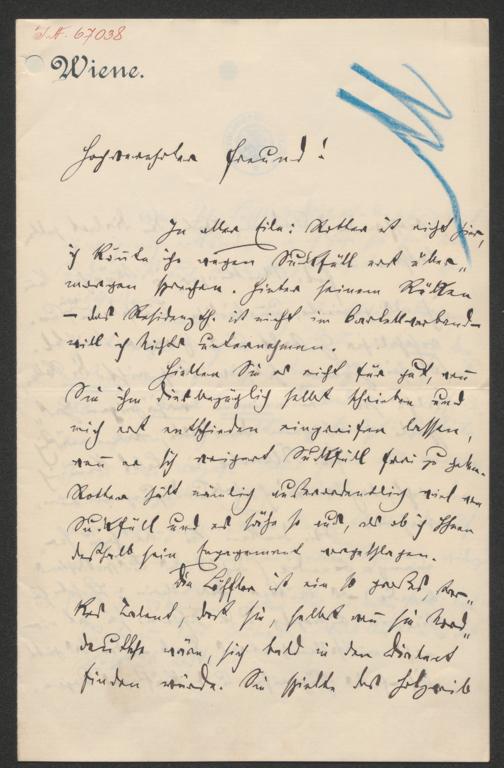 I.N. 67038
Wiene.
Hochverehrter Freund!
In aller Eile: Rotter ist nicht hier,
ich könnte ihn wegen Sudfüll erst über-
morgen sprechen. Hinter seinem Rücken
— das Residenzth. ist nicht im Cartellverband —
will ich nichts unternehmen.
Hielten Sie es nicht für gut, wenn
Sie ihm diesbezüglich selbst schrieben und
mich erst entschieden eingreifen lassen,
wenn er sich weigert Sudfüll frei zu geben.
Rotter hält nämlich außerordentlich viel von
Sudfüll und es sähe so aus, als ob ich Ihnen
deshalb sein Engagement vorgeschlagen.
Die Löffler ist ein so großes, star-
kes Talent, daß sie, selbst wenn sie Nord-
deutsche wäre, sich bald in den Dialect
finden würde. Sie spielte das